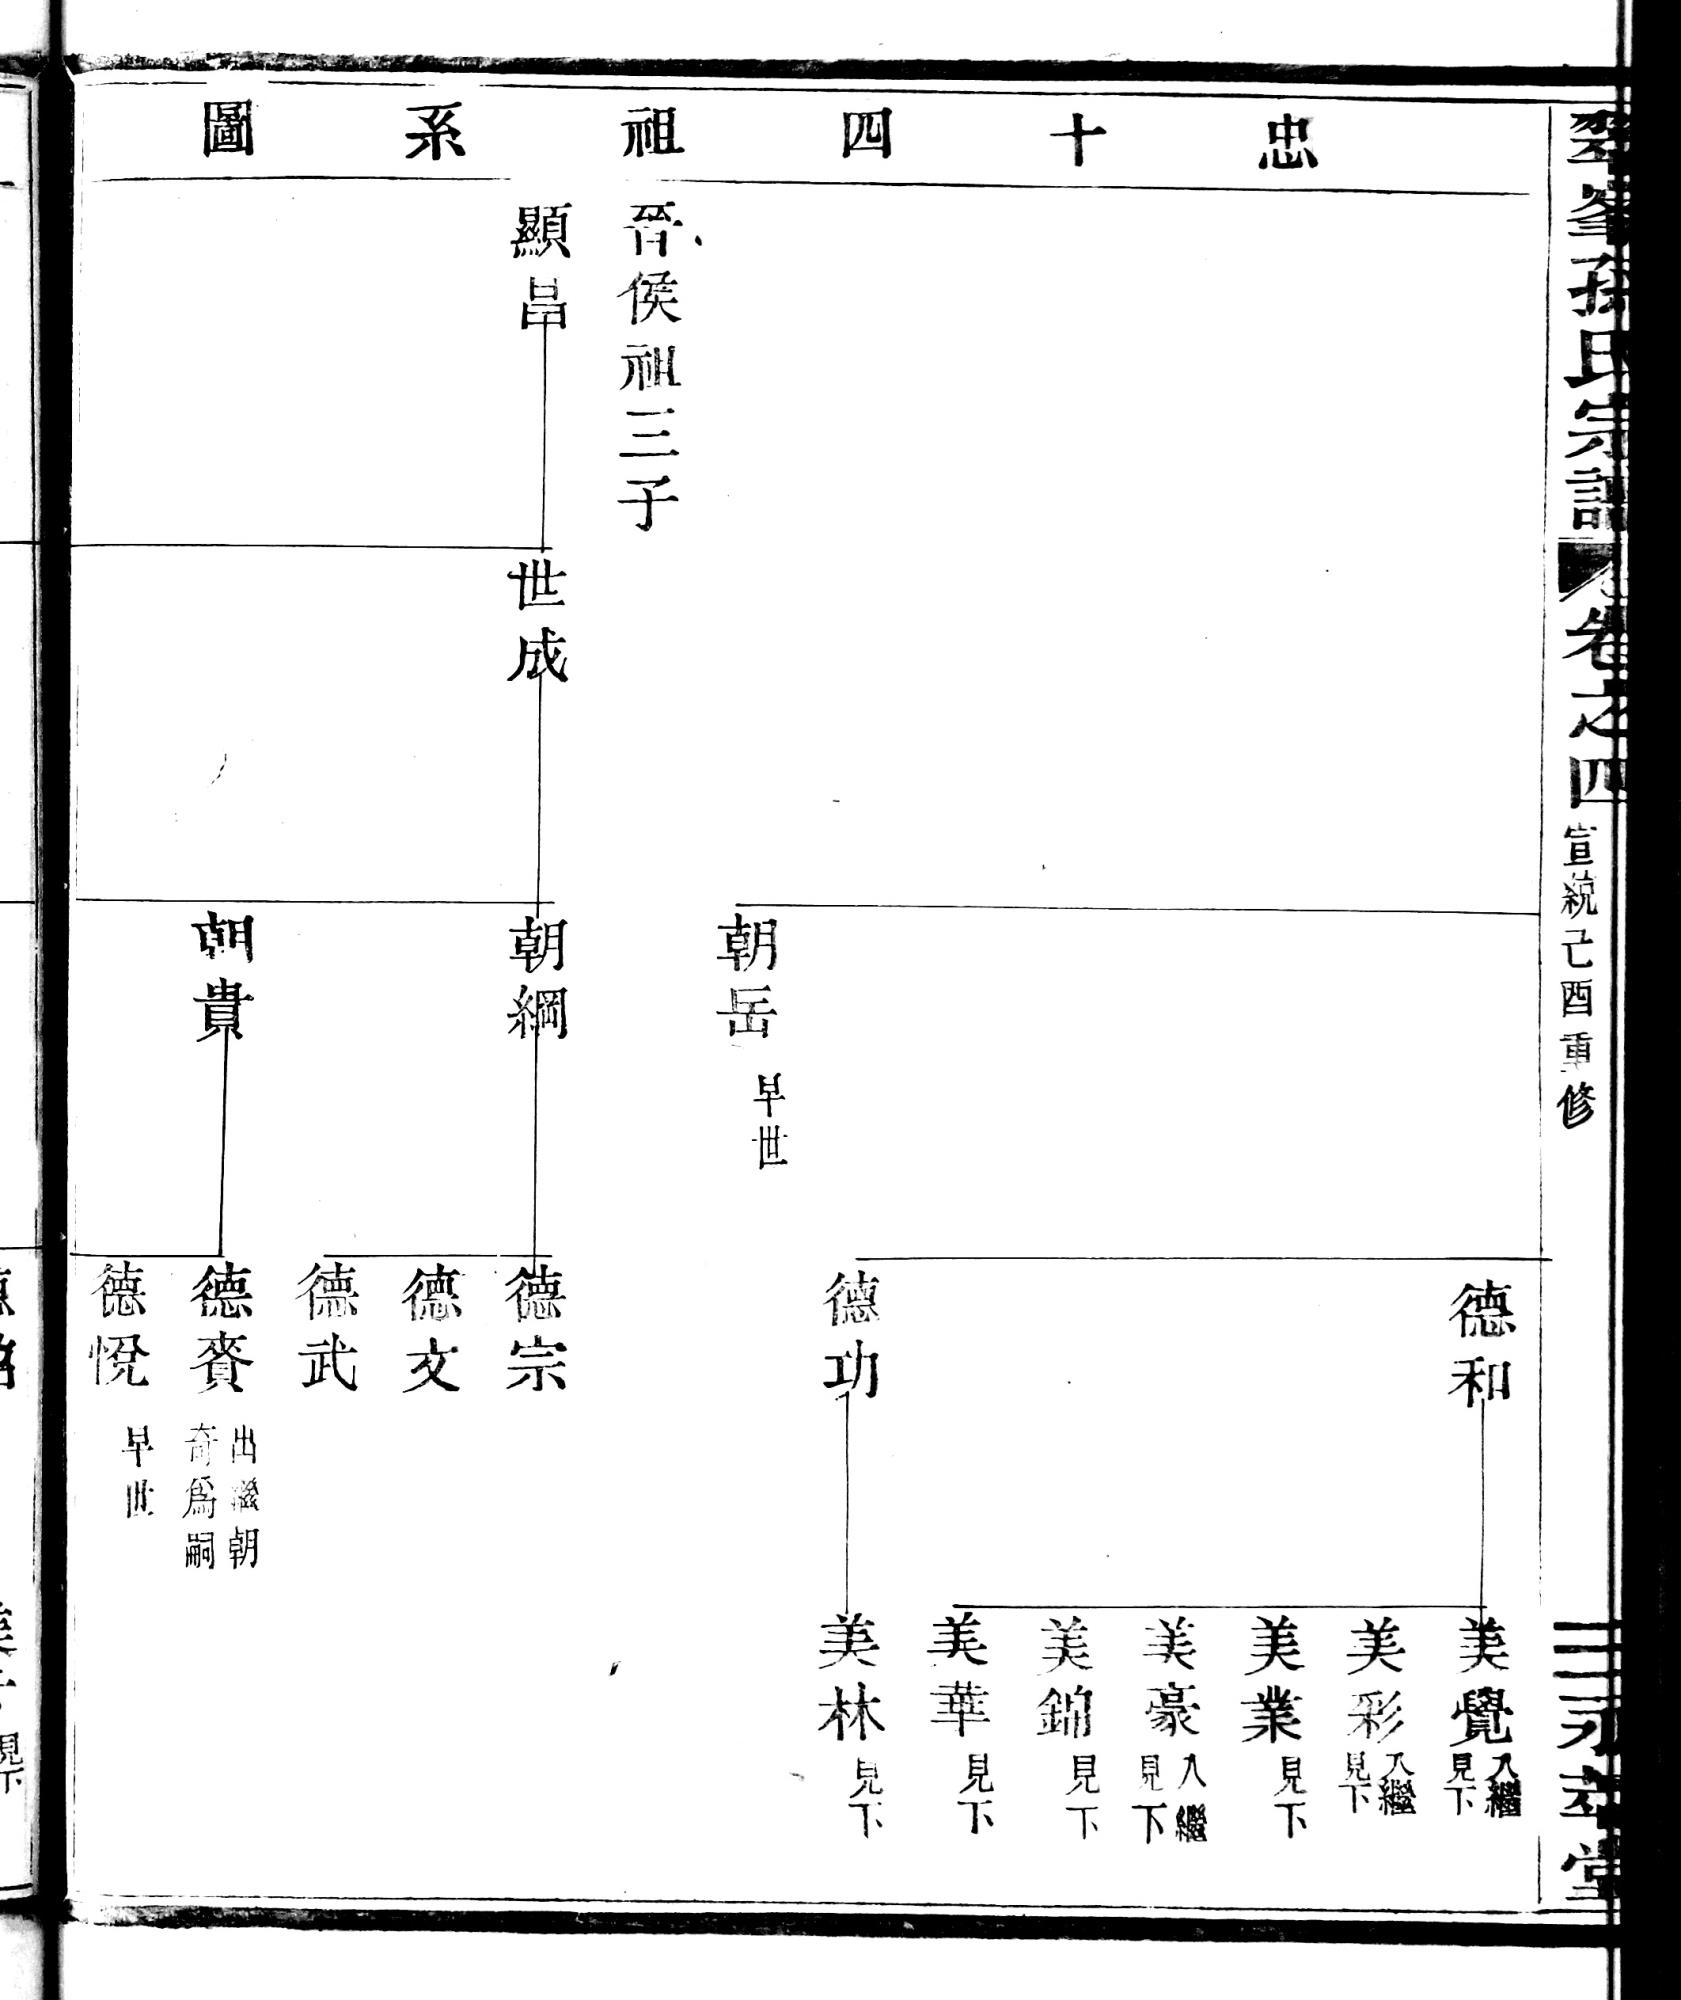 翠峯孫氏宗譜
卷之四
宣統己酉重修
三
永萃堂
忠十四祖系圖
德和
美覺
入繼
見下
美彩
入繼
見下
美業
見下
美豪
入繼
見下
美錦
見下
美華
見下
德功
美林
見下
朝岳
早世
晉侯祖三子
顯昌
世成
朝綱
德宗
德文
德武
朝貴
德賚
出繼朝
奇爲嗣
德悅
早世
見下